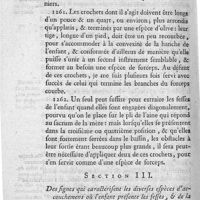 miers.
1261. Les crochets dont il s'agit doivent être longs
d'un pouce & un quart, ou environ, plus arrondis
qu'applatis, & terminés par une espece d'olive : leur
tige, longue d'un pied, doit être un peu recourbée,
pour s'accommoder à la convexité de la hanche de
l'enfant, & conformée d'ailleurs de maniere qu'elle
puisse s'unir à une second instrument semblable, & for-
mer au besoin une espece de forceps. Au défaut de
ces crochets, je me suis plusieurs fois servi avec
succès de celui qui termine les branches du forceps
courbe.
1262. Un seul peut suffire pour extraire les fesses
de l'enfant quand elles sont engagées disgracieusement,
pourvu qu'on le place sur le pli de l'aine qui répond
au sacrum de la mere : mais lorsqu'elles se présentent
dans la troisieme ou quatrieme position, & qu'elles
sont extrêmement serrées dans le bassin, les obstacles à
leur sortie étant beaucoup plus grands, il sera peut-
être nécessaire d'appliquer deux de ces crochets, pour
s'en servir comme d'une espece de forceps.
SECTION III.
Des signes qui caractérisent les diverses espèces d'ac-
couchement où l'enfant présente les fesses, & de la